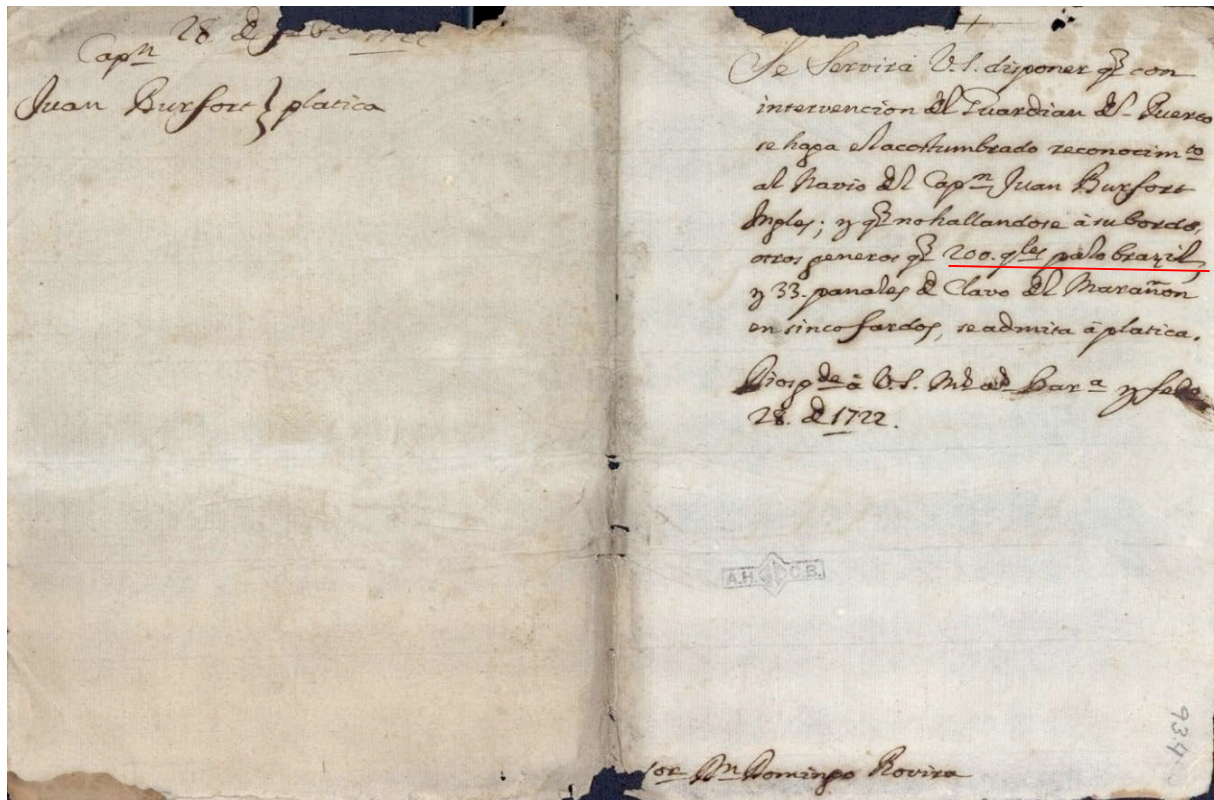 28 de Febro 1722
Capn
Juan Burfort } platica
Se Servirá V.S. disponer qe con
intervencion del Guardian del Puerto
se haga el acostumbrado reconocimto
al Navio del Capn Juan Burfort
Ingles; y qe no hallandose à su bordo,
otros generos qe 200. qles palo brazil,
y 33. panales de Clavo del Marañon
en sinco fardos, se admita à platica.
Dios gde à V.S. ms ad Bara y Febo
28. de 1722.
A.H. C.B.
934
or Dn Domingo Rovira